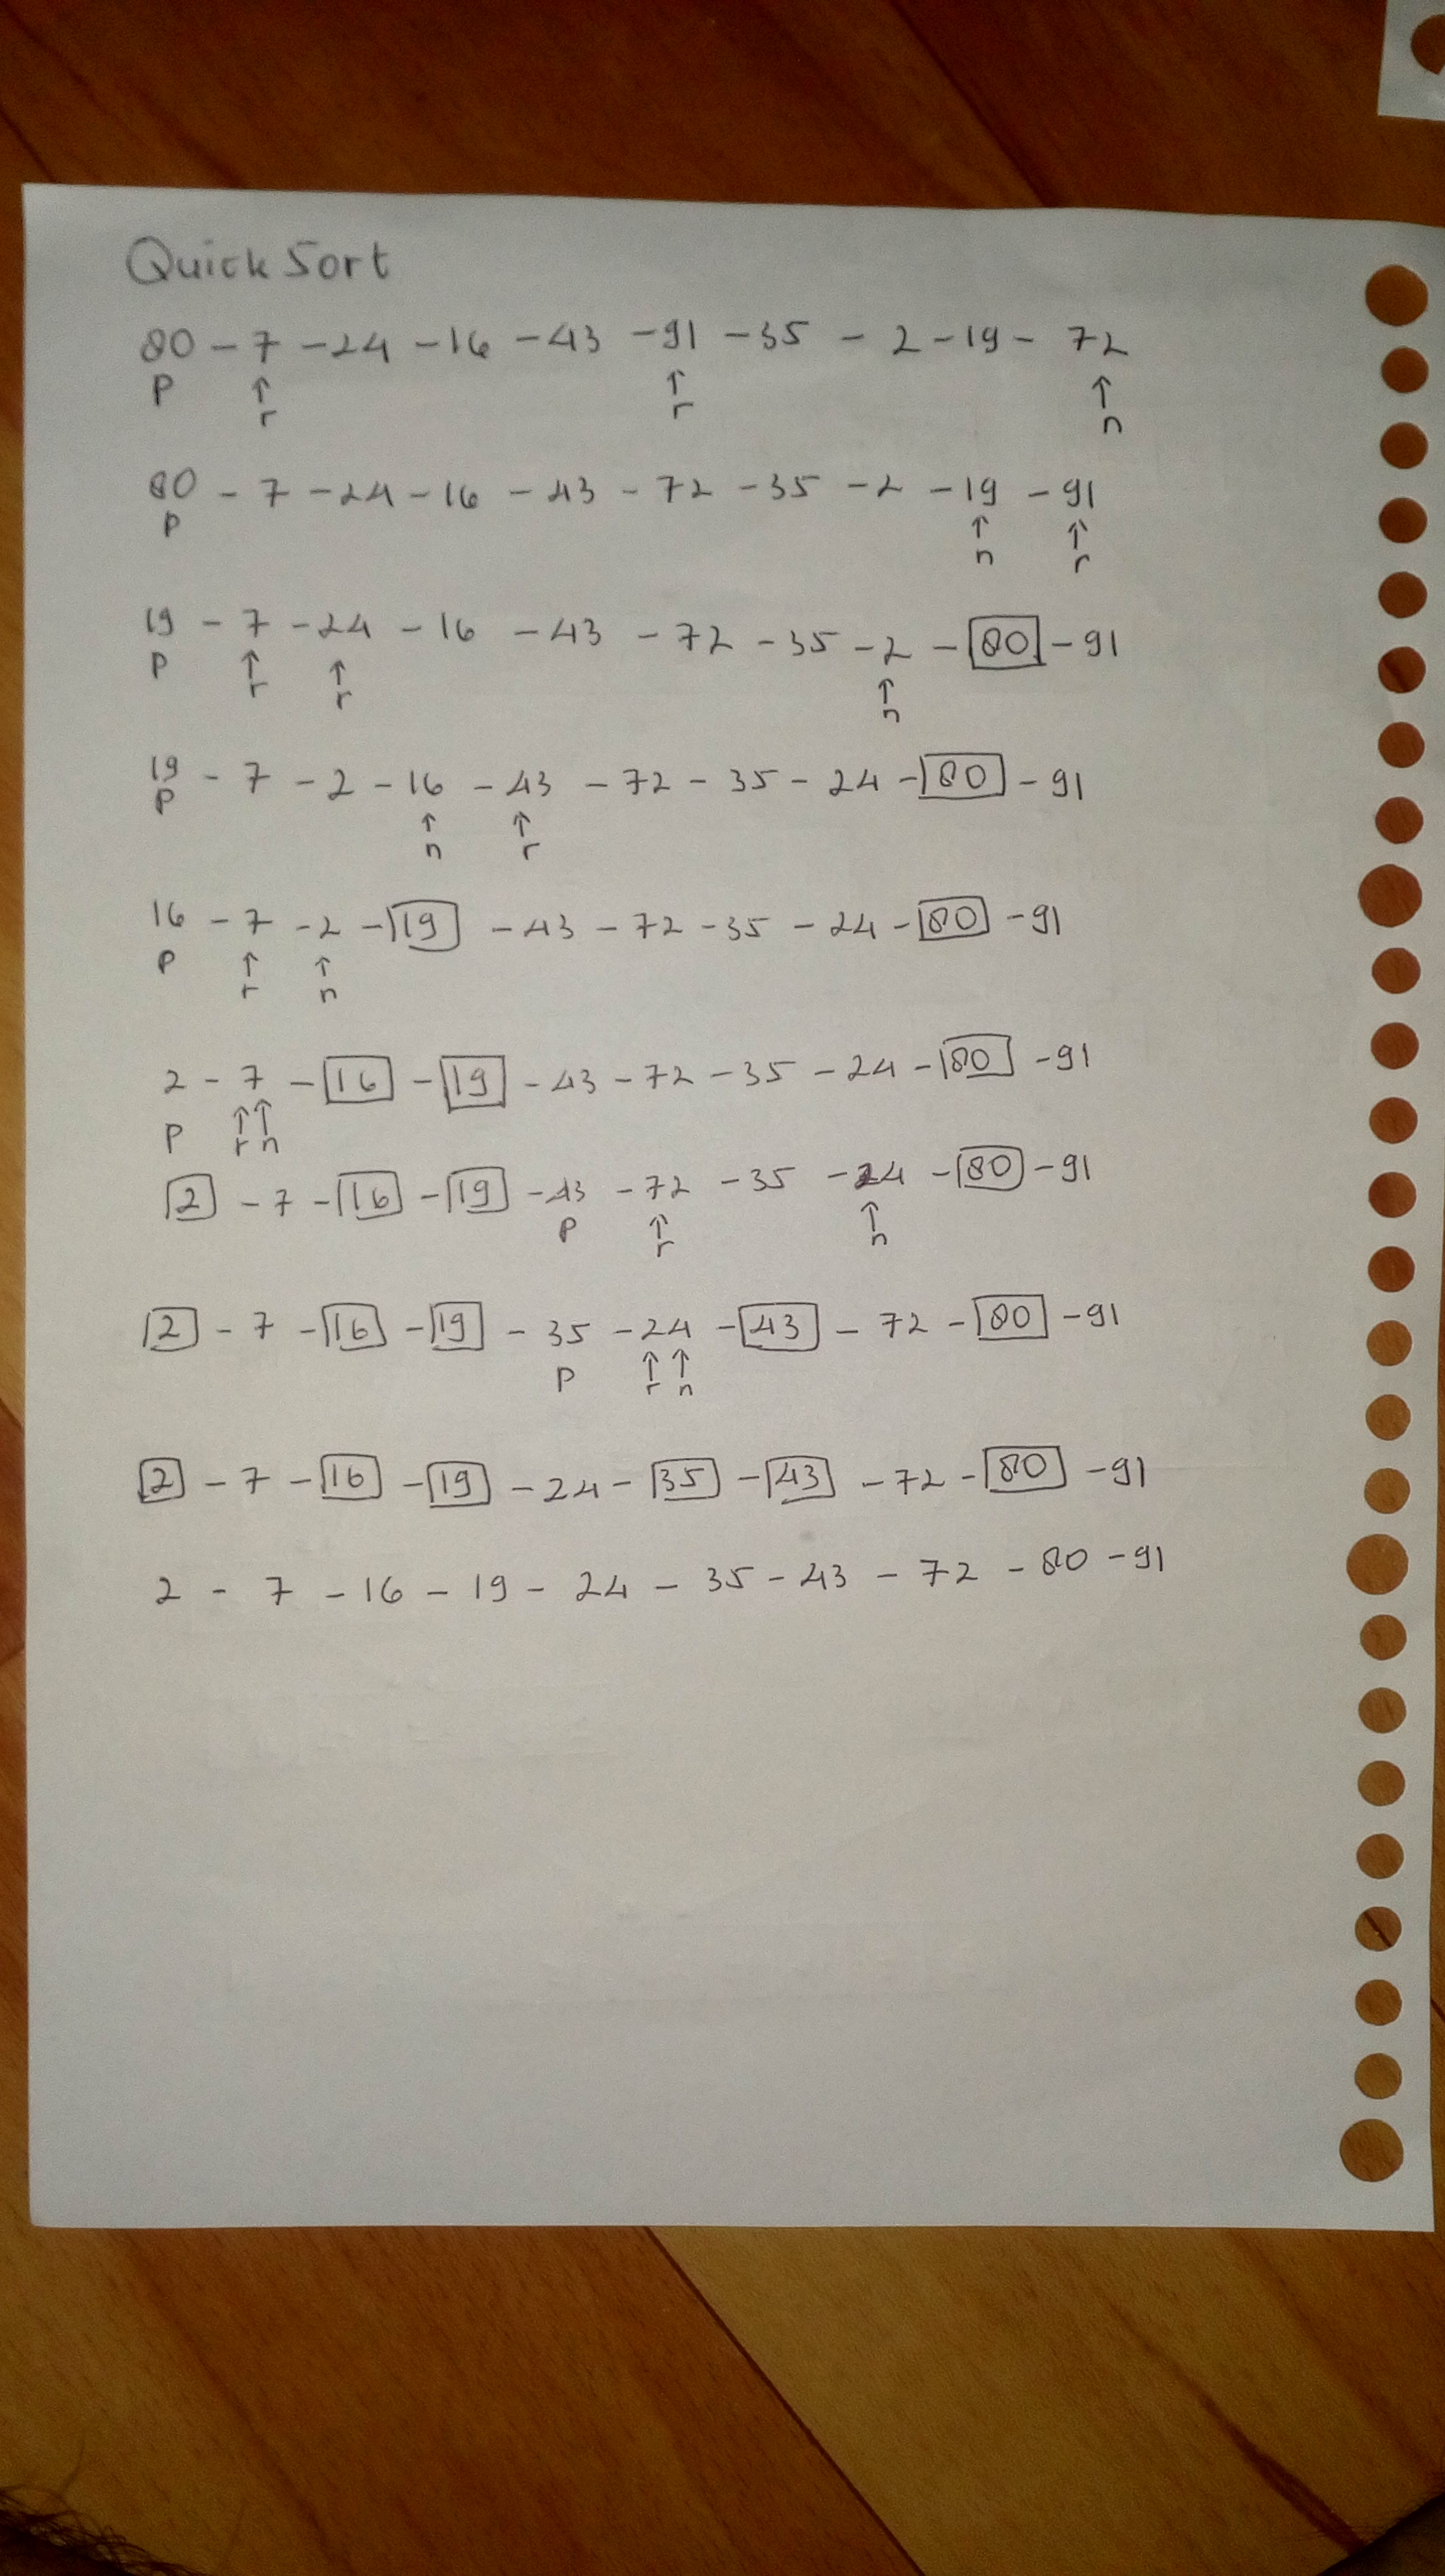 Quick Sort
80 - 7 - 24 - 16 - 43 - 91 - 35 - 2 - 19 - 72
P ↑ ↑ ↑
r r n
80 - 7 - 24 - 16 - 43 - 72 - 35 - 2 - 19 - 91
P ↑ ↑
n r
19 - 7 - 24 - 16 - 43 - 72 - 35 - 2 - 80 - 91
P ↑ ↑ ↑
r r n
19 - 7 - 2 - 16 - 43 - 72 - 35 - 24 - 80 - 91
P ↑ ↑
n r
16 - 7 - 2 - 19 - 43 - 72 - 35 - 24 - 80 - 91
P ↑ ↑
r n
2 - 7 - 16 - 19 - 43 - 72 - 35 - 24 - 80 - 91
P ↑ ↑
r n
2 - 7 - 16 - 19 - 43 - 72 - 35 - 24 - 80 - 91
P ↑ ↑
r n
2 - 7 - 16 - 19 - 35 - 24 - 43 - 72 - 80 - 91
P ↑ ↑
r n
2 - 7 - 16 - 19 - 24 - 35 - 43 - 72 - 80 - 91
2 - 7 - 16 - 19 - 24 - 35 - 43 - 72 - 80 - 91